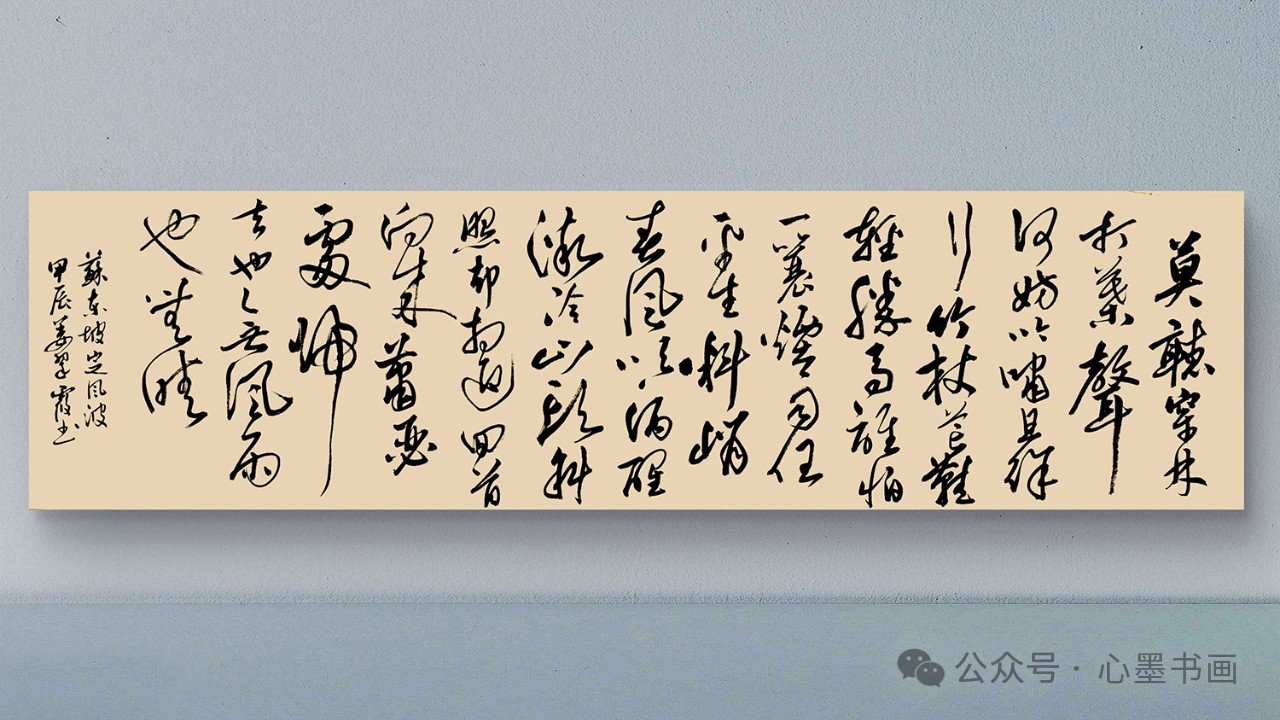 莫聽穿林
打葉聲
何妨吟嘯且徐
行竹杖芒鞋
輕勝馬誰怕
一蓑煙雨任
平生料峭
春風吹酒醒
微冷山頭斜
照卻相迎回首
向來蕭瑟
處歸
去也无風雨
也無晴
蘇東坡定風波
甲辰姜翠霞书
公众号 · 心墨书画